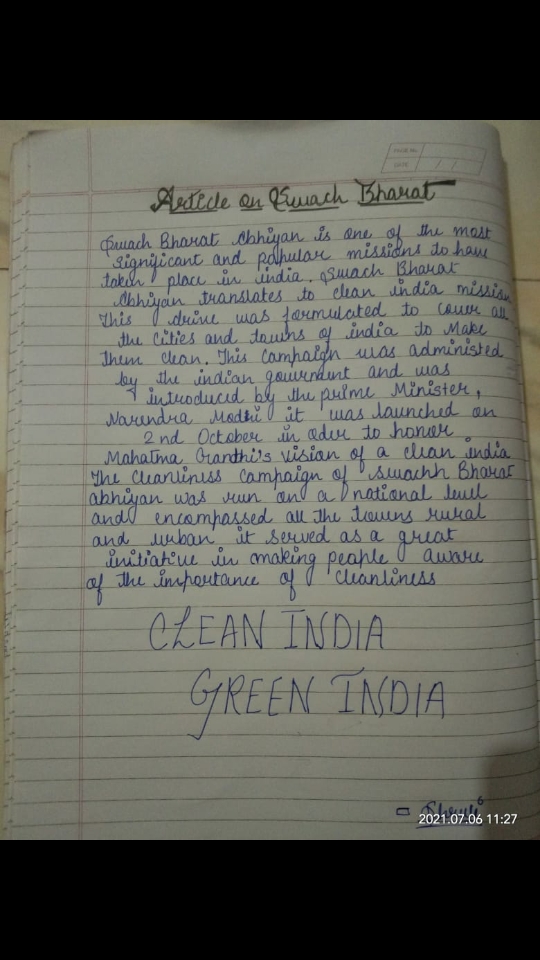 PAGE No.
DATE
Article on Swach Bharat
Swach Bharat Abhiyan is one of the most
significant and papular missions to have
taken place in india. Swach Bharat
Abhiyan translates to clean india mission
This drive was formulated to couer all
the cities and towns of india to Make
them clean. This campaign was administed
by the indian gouernment and was
introduced by the prime Minister,
Narendra Modhi it was launched on
2nd October in oder to honor
Mahatma Grandhi's vision of a clean india
The cleanliness campaign of swachh Bharat
abhiyan was run on a national leuel
and encompassed all the towns rural
and urban it served as a great
initiative in making people aware
of the importance of cleanliness
CLEAN INDIA
GREEN INDIA
2021.07.06 11:27